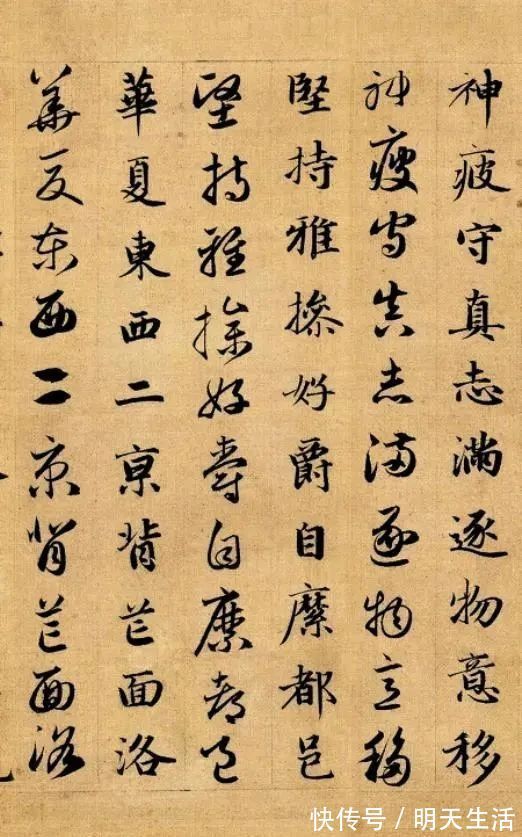 神疲守真志滿逐物意移
神疲守真志滿逐物意移
堅持雅操好爵自縻都邑
堅持雅操好爵自縻都邑
華夏東西二亰背芒面洛
華夏東西二京背芒面洛
快传号 / 明天生活